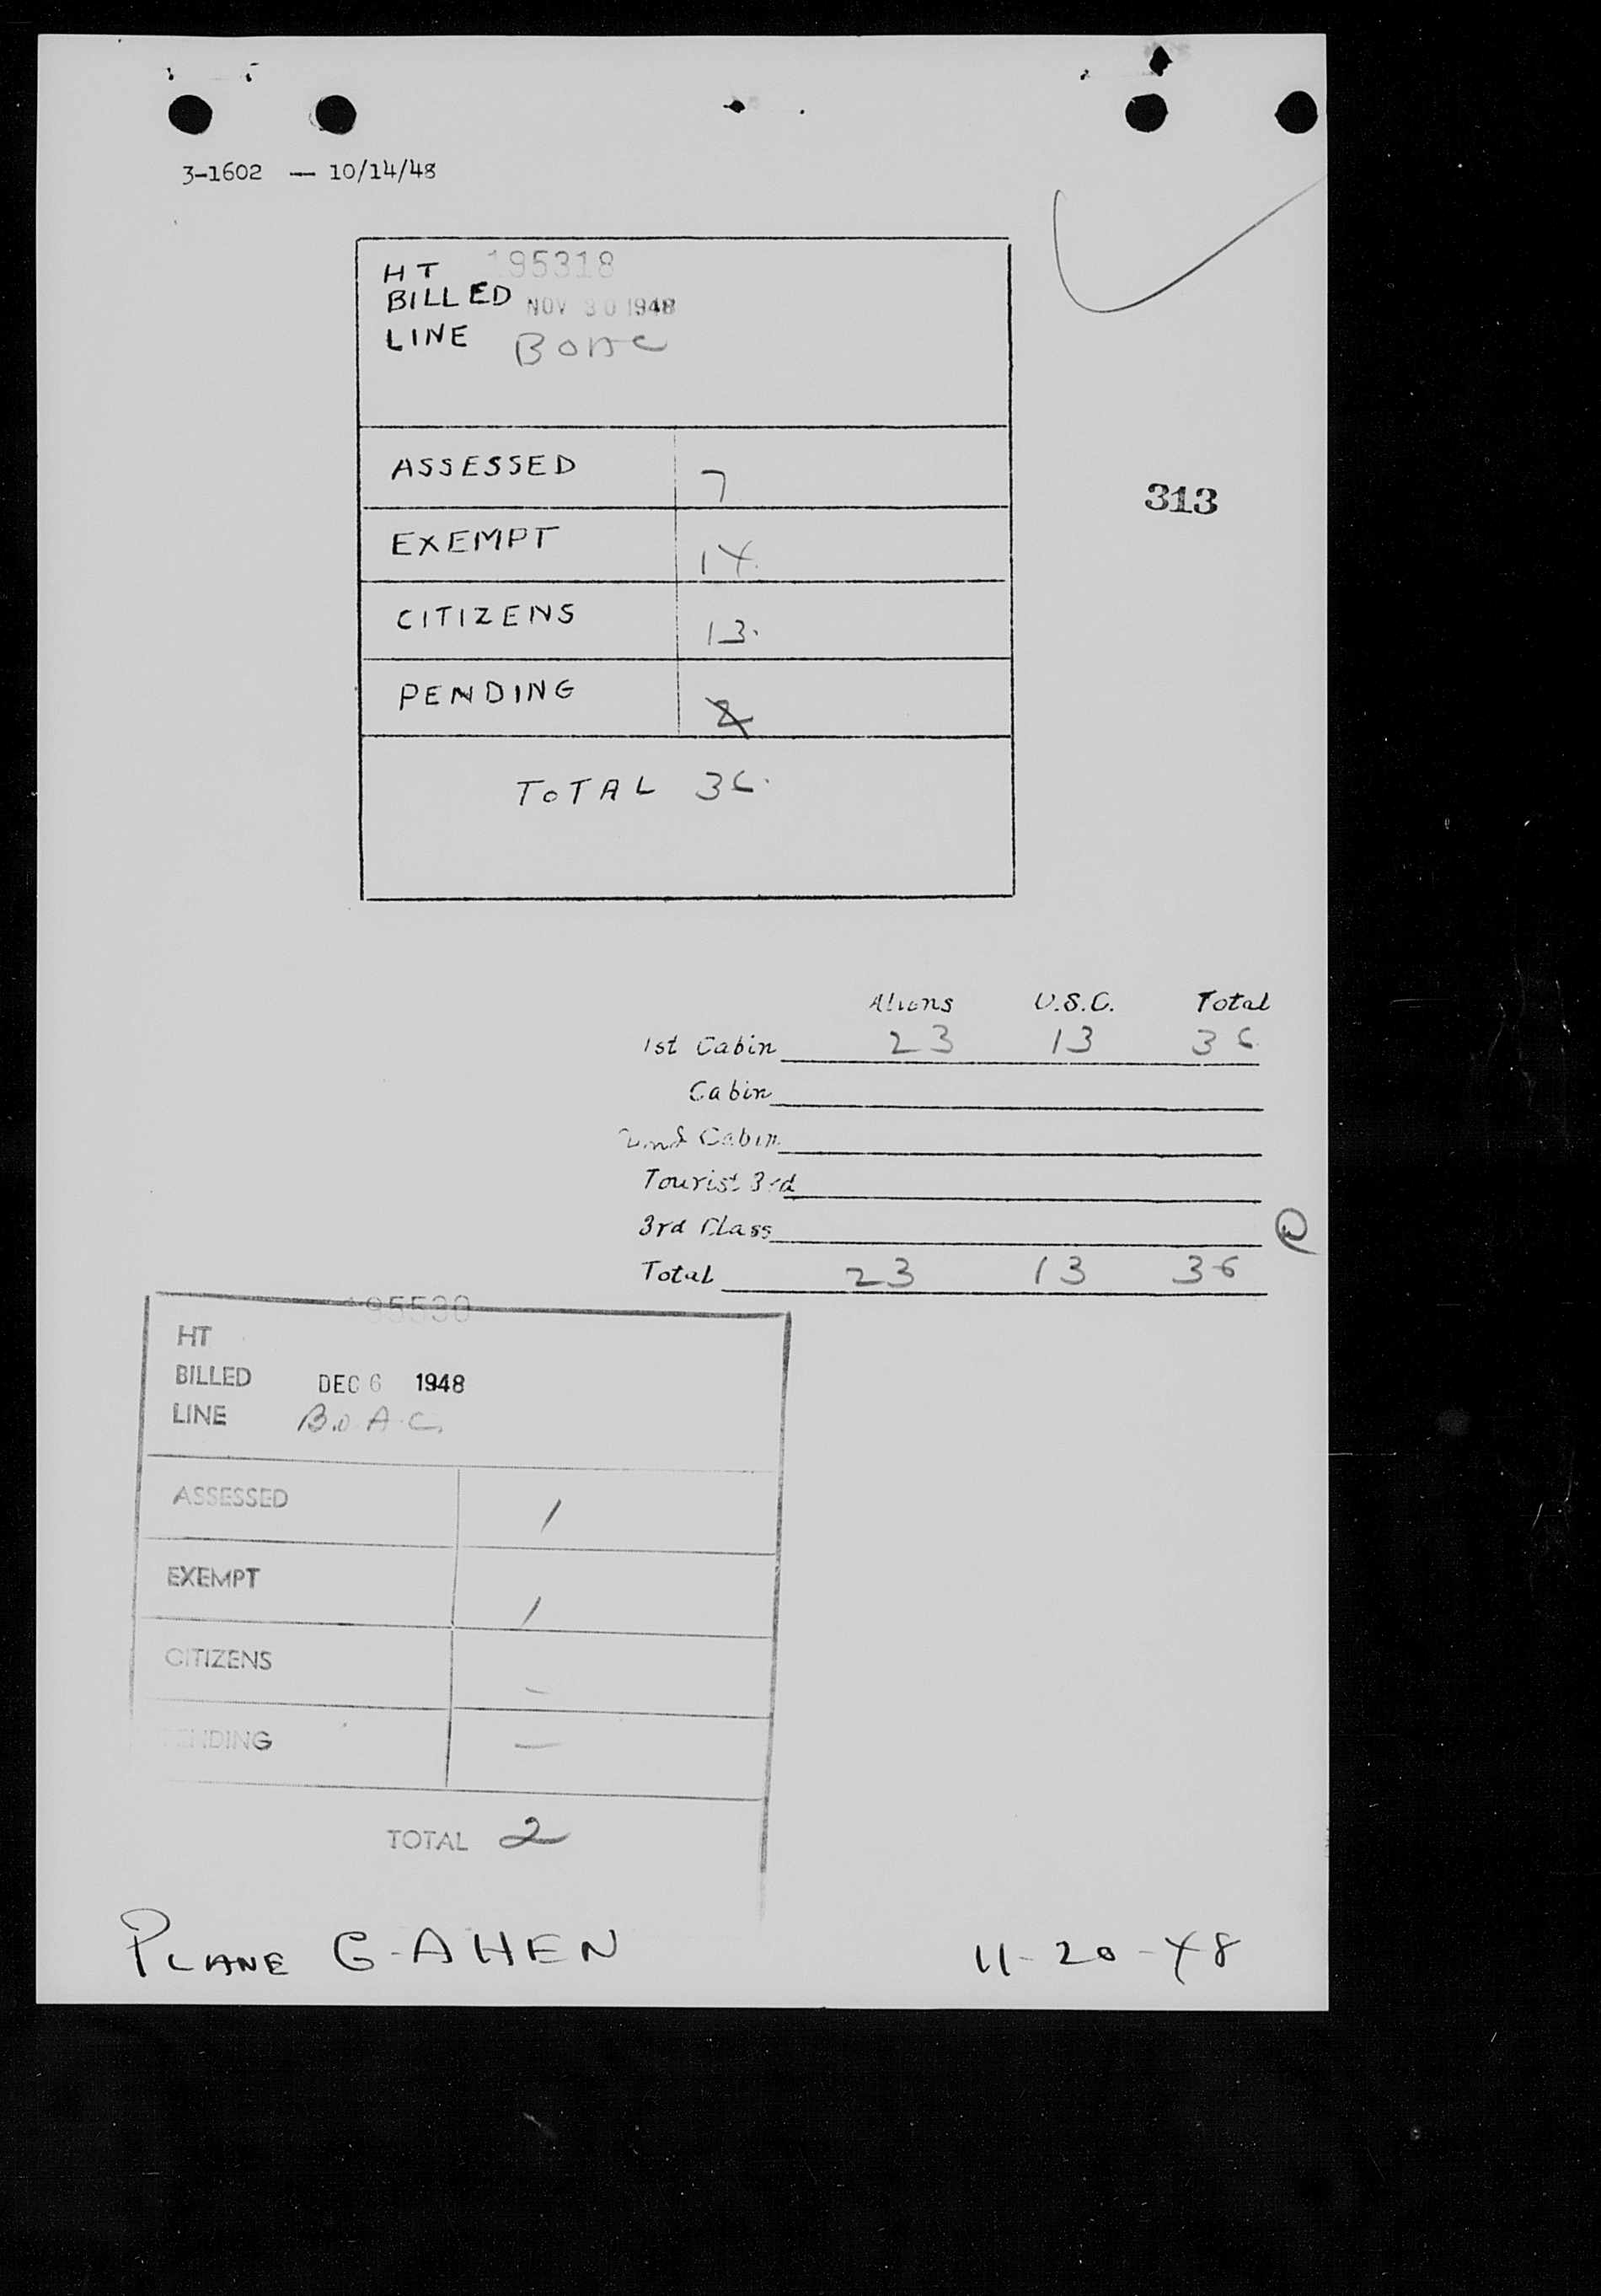 3-1602 — 10/14/48
HT 195318
BILLED NOV 30 1948
LINE BOAC
ASSESSED 7
313
EXEMPT 14.
CITIZENS 13.
PENDING 2
TOTAL 36.
Aliens U.S.C. Total
1st Cabin 23 13 36
Cabin
2nd Cabin
Tourist 3rd
3rd Class
Total 23 13 36
195530
HT
BILLED DEC 6 1948
LINE B.O.A.C.
ASSESSED 1
EXEMPT 1
CITIZENS –
PENDING –
TOTAL 2
PLANE G-AHEN 11-20-48